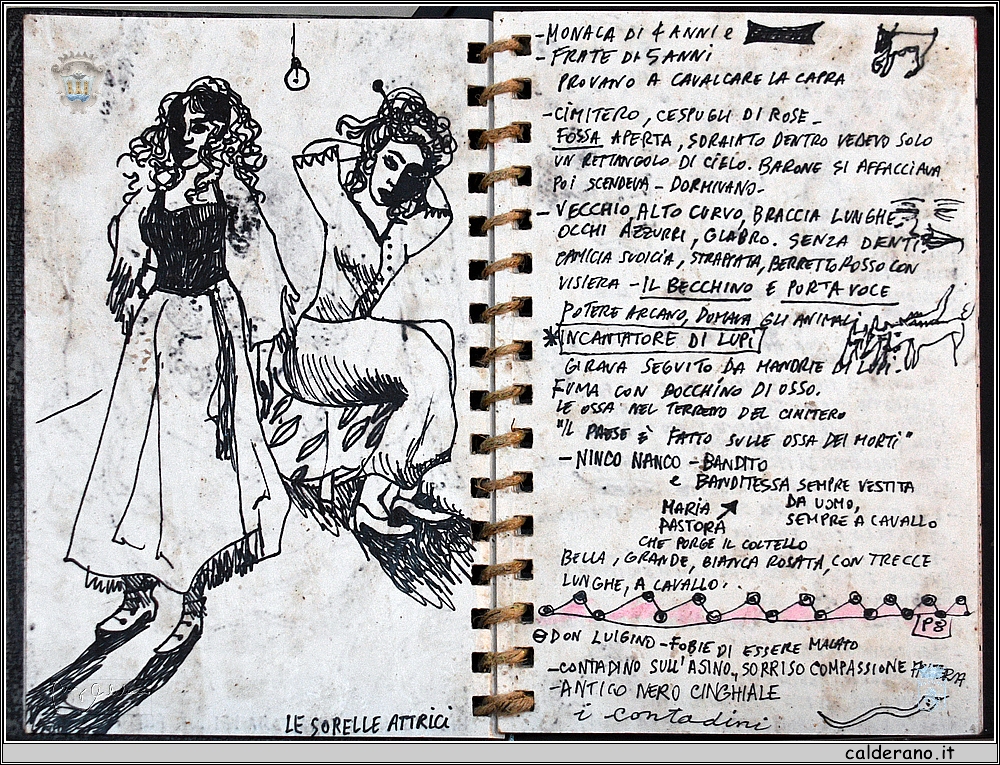 LE SORELLE ATTRICI
- MONACA DI 4 ANNI e
- FRATE DI 5 ANNI
PROVANO A CAVALCARE LA CAPRA
- CIMITERO, CESPUGLI DI ROSE -
FOSSA APERTA, SDRAIATO DENTRO VEDEVO SOLO
UN RETTANGOLO DI CIELO. BARONE SI AFFACCIAVA
POI SCENDEVA - DORMIVANO -
- VECCHIO, ALTO CURVO, BRACCIA LUNGHE,
OCCHI AZZURRI, GLABRO. SENZA DENTI
CAMICIA SUDICIA, STRAPPATA, BERRETTO ROSSO CON
VISIERA - IL BECCHINO E PORTAVOCE
POTERE ARCANO, DOMAVA GLI ANIMALI
* INCANTATORE DI LUPI
GIRAVA SEGUITO DA MANDRIE DI LUPI -
FUMA CON BOCCHINO DI OSSO.
LE OSSA NEL TERRENO DEL CIMITERO
"IL PAESE È FATTO SULLE OSSA DEI MORTI"
- NINCO NANCO - BANDITO
e BANDITESSA SEMPRE VESTITA
DA UOMO,
SEMPRE A CAVALLO
MARIA
PASTORA
CHE PORGE IL COLTELLO
BELLA, GRANDE, BIANCA ROSATA, CON TRECCE
LUNGHE, A CAVALLO..
P3
DON LUIGINO - FOBIE DI ESSERE MALATO
- CONTADINO SULL'ASINO, SORRISO COMPASSIONE
- ANTICO NERO CINGHIALE
i contadini
calderano.it